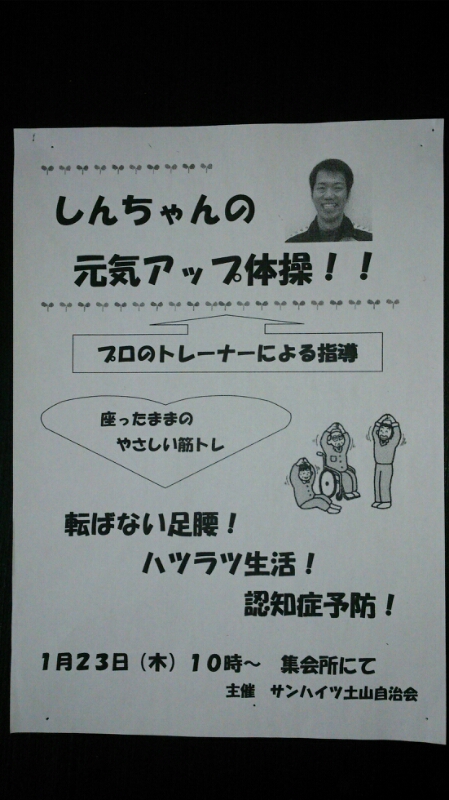 しんちゃんの
元気アップ体操！！
プロのトレーナーによる指導
座ったままの
やさしい筋トレ
転ばない足腰！
ハツラツ生活！
認知症予防！
１月２３日（木）１０時～　集会所にて
主催　サンハイツ土山自治会